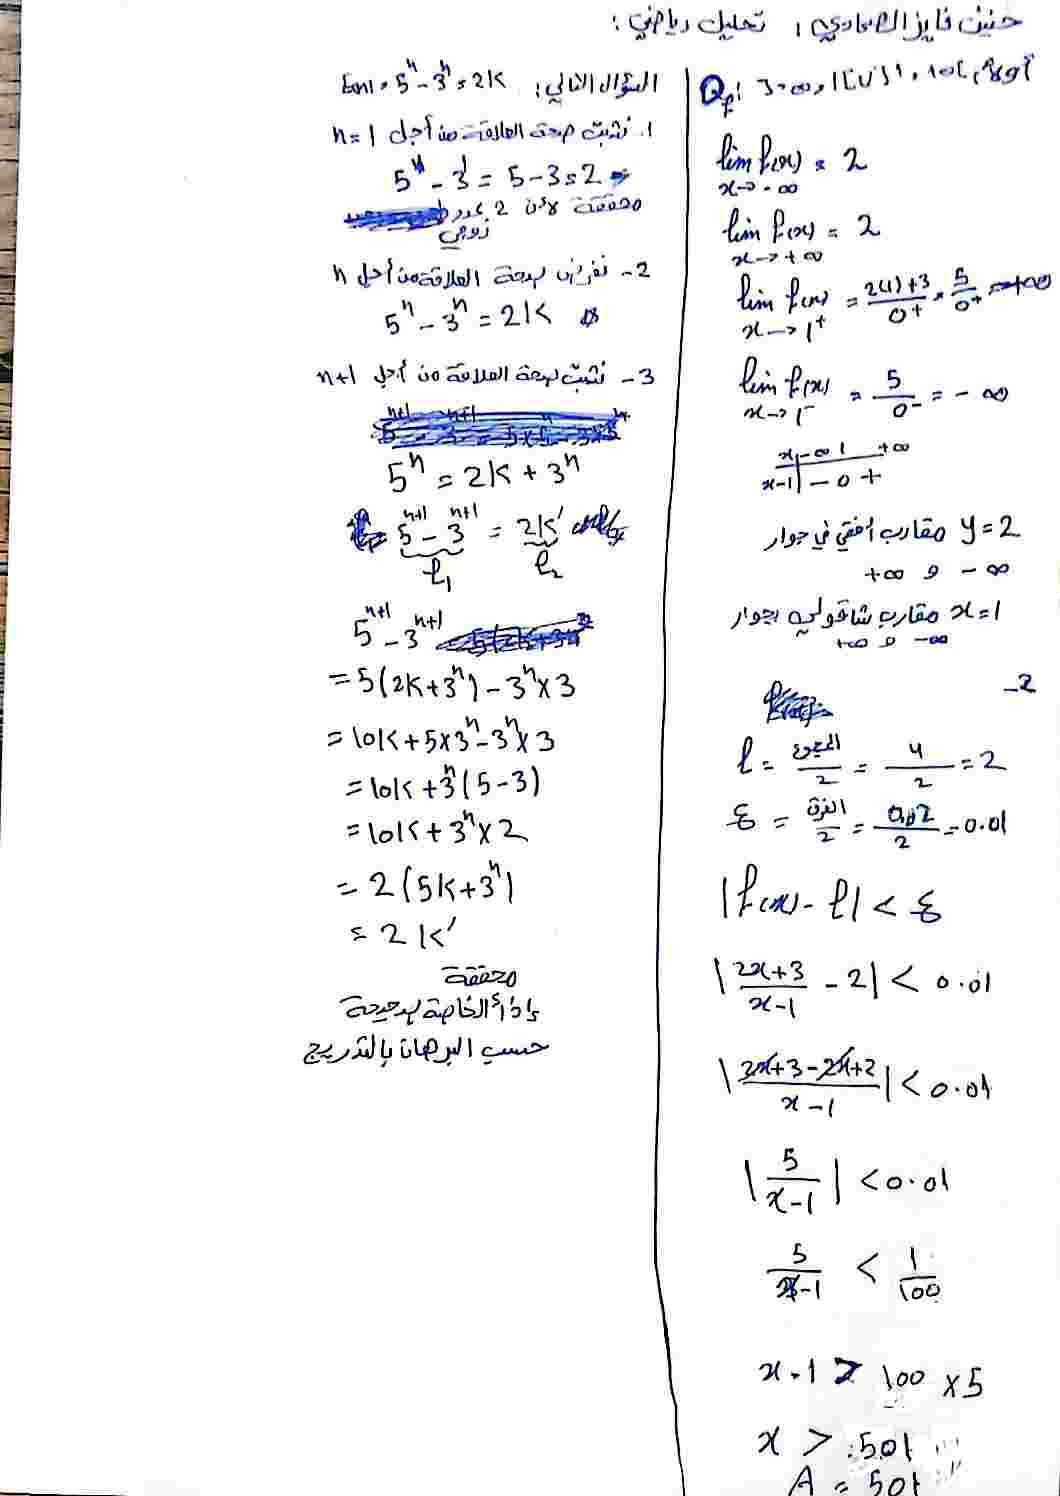 حنين فايز الصمادي، تحليل رياضي:
أولاً: D_f: ]-∞, 1[ ∪ ]1, +∞[
lim f(x) = 2
x→-∞
lim f(x) = 2
x→+∞
lim f(x) = 2(1)+3 / 0+ = 5 / 0+ = +∞
x→1+
lim f(x) = 5 / 0- = -∞
x→1-
x | -∞ 1 +∞
x-1 | - 0 +
y=2 مقارب افقي في جوار
-∞ و +∞
x=1 مقارب شاقولي بجوار
-∞ و +∞
-2
ℓ = المجموع / 2 = 4 / 2 = 2
ε = الفرق / 2 = 0.02 / 2 = 0.01
|f(x) - ℓ| < ε
|2x+3 / x-1 - 2| < 0.01
|2x+3-2x+2 / x-1| < 0.01
|5 / x-1| < 0.01
5 / x-1 < 1 / 100
x-1 > 100 × 5
x > 501
A = 501
السؤال الثاني: E(n): 5^n - 3^n = 2K
1. نثبت صحة العلاقة من أجل n=1
5^1 - 3^1 = 5-3 = 2
محققة لأن 2 عدد
زوجي
2- نفرض صحة العلاقة من أجل n
5^n - 3^n = 2K
3- نثبت صحة العلاقة من أجل n+1
5^n = 2K + 3^n
5^{n+1} - 3^{n+1} = 2K'
ℓ₁ ℓ₂
5^{n+1} - 3^{n+1}
= 5(2K+3^n) - 3^n × 3
= 10K + 5×3^n - 3^n × 3
= 10K + 3^n (5-3)
= 10K + 3^n × 2
= 2(5K+3^n)
= 2K'
محققة
إذاً الخاصة صحيحة
حسب البرهان بالتدريج